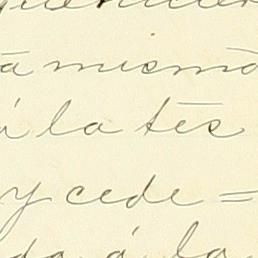 a mismo
á la tes
y cede=
do á la